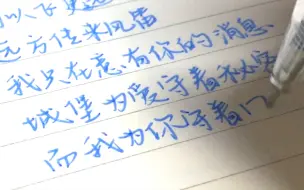 远方传来风笛
我只在意有你的消息
城堡为爱守着秘密
而我为你守着门